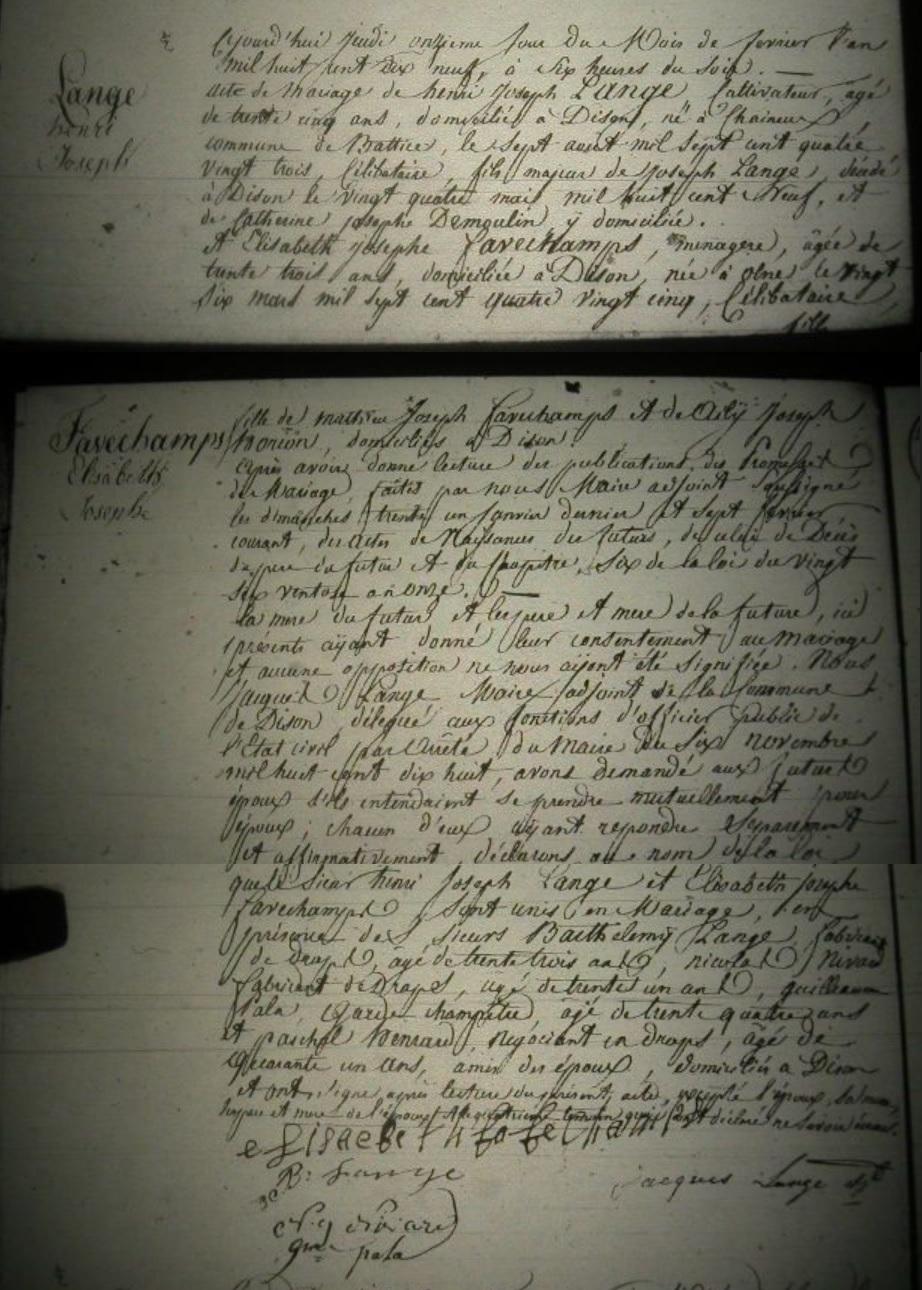 Lange
henri
Joseph
Cejourd'hui Jeudi onzieme Jour du Mois de fevrier l'an
mil huit cent dix neuf, à six heures du soir. —
acte de Mariage de henri Joseph Lange Cultivateur, agé
de trente cinq ans, domicilié à Dison, né à Chaineux
commune de Battice, le sept aout mil sept cent quatre
vingt trois, Célibataire, fils majeur de Joseph Lange, décédé
à Dison le vingt quatre mai mil huit cent Neuf, et
de Catherine josephe Demoulin y domiciliée.
Et Elisabeth josephe Favechamps, menagere, agée de
trente trois ans, domiciliée à Dison, née à olne le vingt
six mars mil sept cent quatre vingt cinq, Célibataire,
fille
Favechamps
Elisabeth
Josephe
fille de mathieu Joseph Favechamps et de Joseph
domiciliés à Dison.
Après avoir donné lecture des publications des Promesses
de Mariage, faites par nous Maire adjoint sousigné
les dimanches trente un Janvier dernier et sept fevrier
courant, des actes de Naissances des futurs, de celui de Décès
du pere du futur et du Chapitre, Six de la loi du vingt
six ventose an onze. —
la mere du futur et les pere et mere de la future, ici
présents aÿant donné leur consentement au Mariage
et aucune opposition ne nous aÿant été signifiée. Nous
Jacques Lange Maire adjoint de la Commune
de Dison, délégué aux fonctions d'officier public de
l'Etat civil par Arrêté du Maire du six novembre
mil huit cent dix huit, avons demandé aux futurs
époux s'ils entendaient se prendre mutuellement pour
époux; chacun d'eux aÿant repondre séparement
et affirmativement, déclarons au nom de la loi
que le Sieur henri Joseph Lange et Elisabeth josephe
Favechamps, sont unis en Mariage, en
présence des Sieurs Barthelemÿ Lange, fabricant
de draps, agé de trente trois ans, nicolas Nivard
fabricant de Draps, agé de trente un ans, guilleaume
Pala, Garde champêtre, agé de trente quatre ans
et paschal henrard, négociant en draps, agé de
quarante un ans, amis des époux, domiciliés à Dison
et ont signé, après lecture du présent acte, excepté l'époux, sa mere,
les pere et mere de l'épouse et le quatrieme temoin qui ont déclaré ne savoir écrire.
B: Lange
Jacques Lange
N. J. Nivard
gme pala